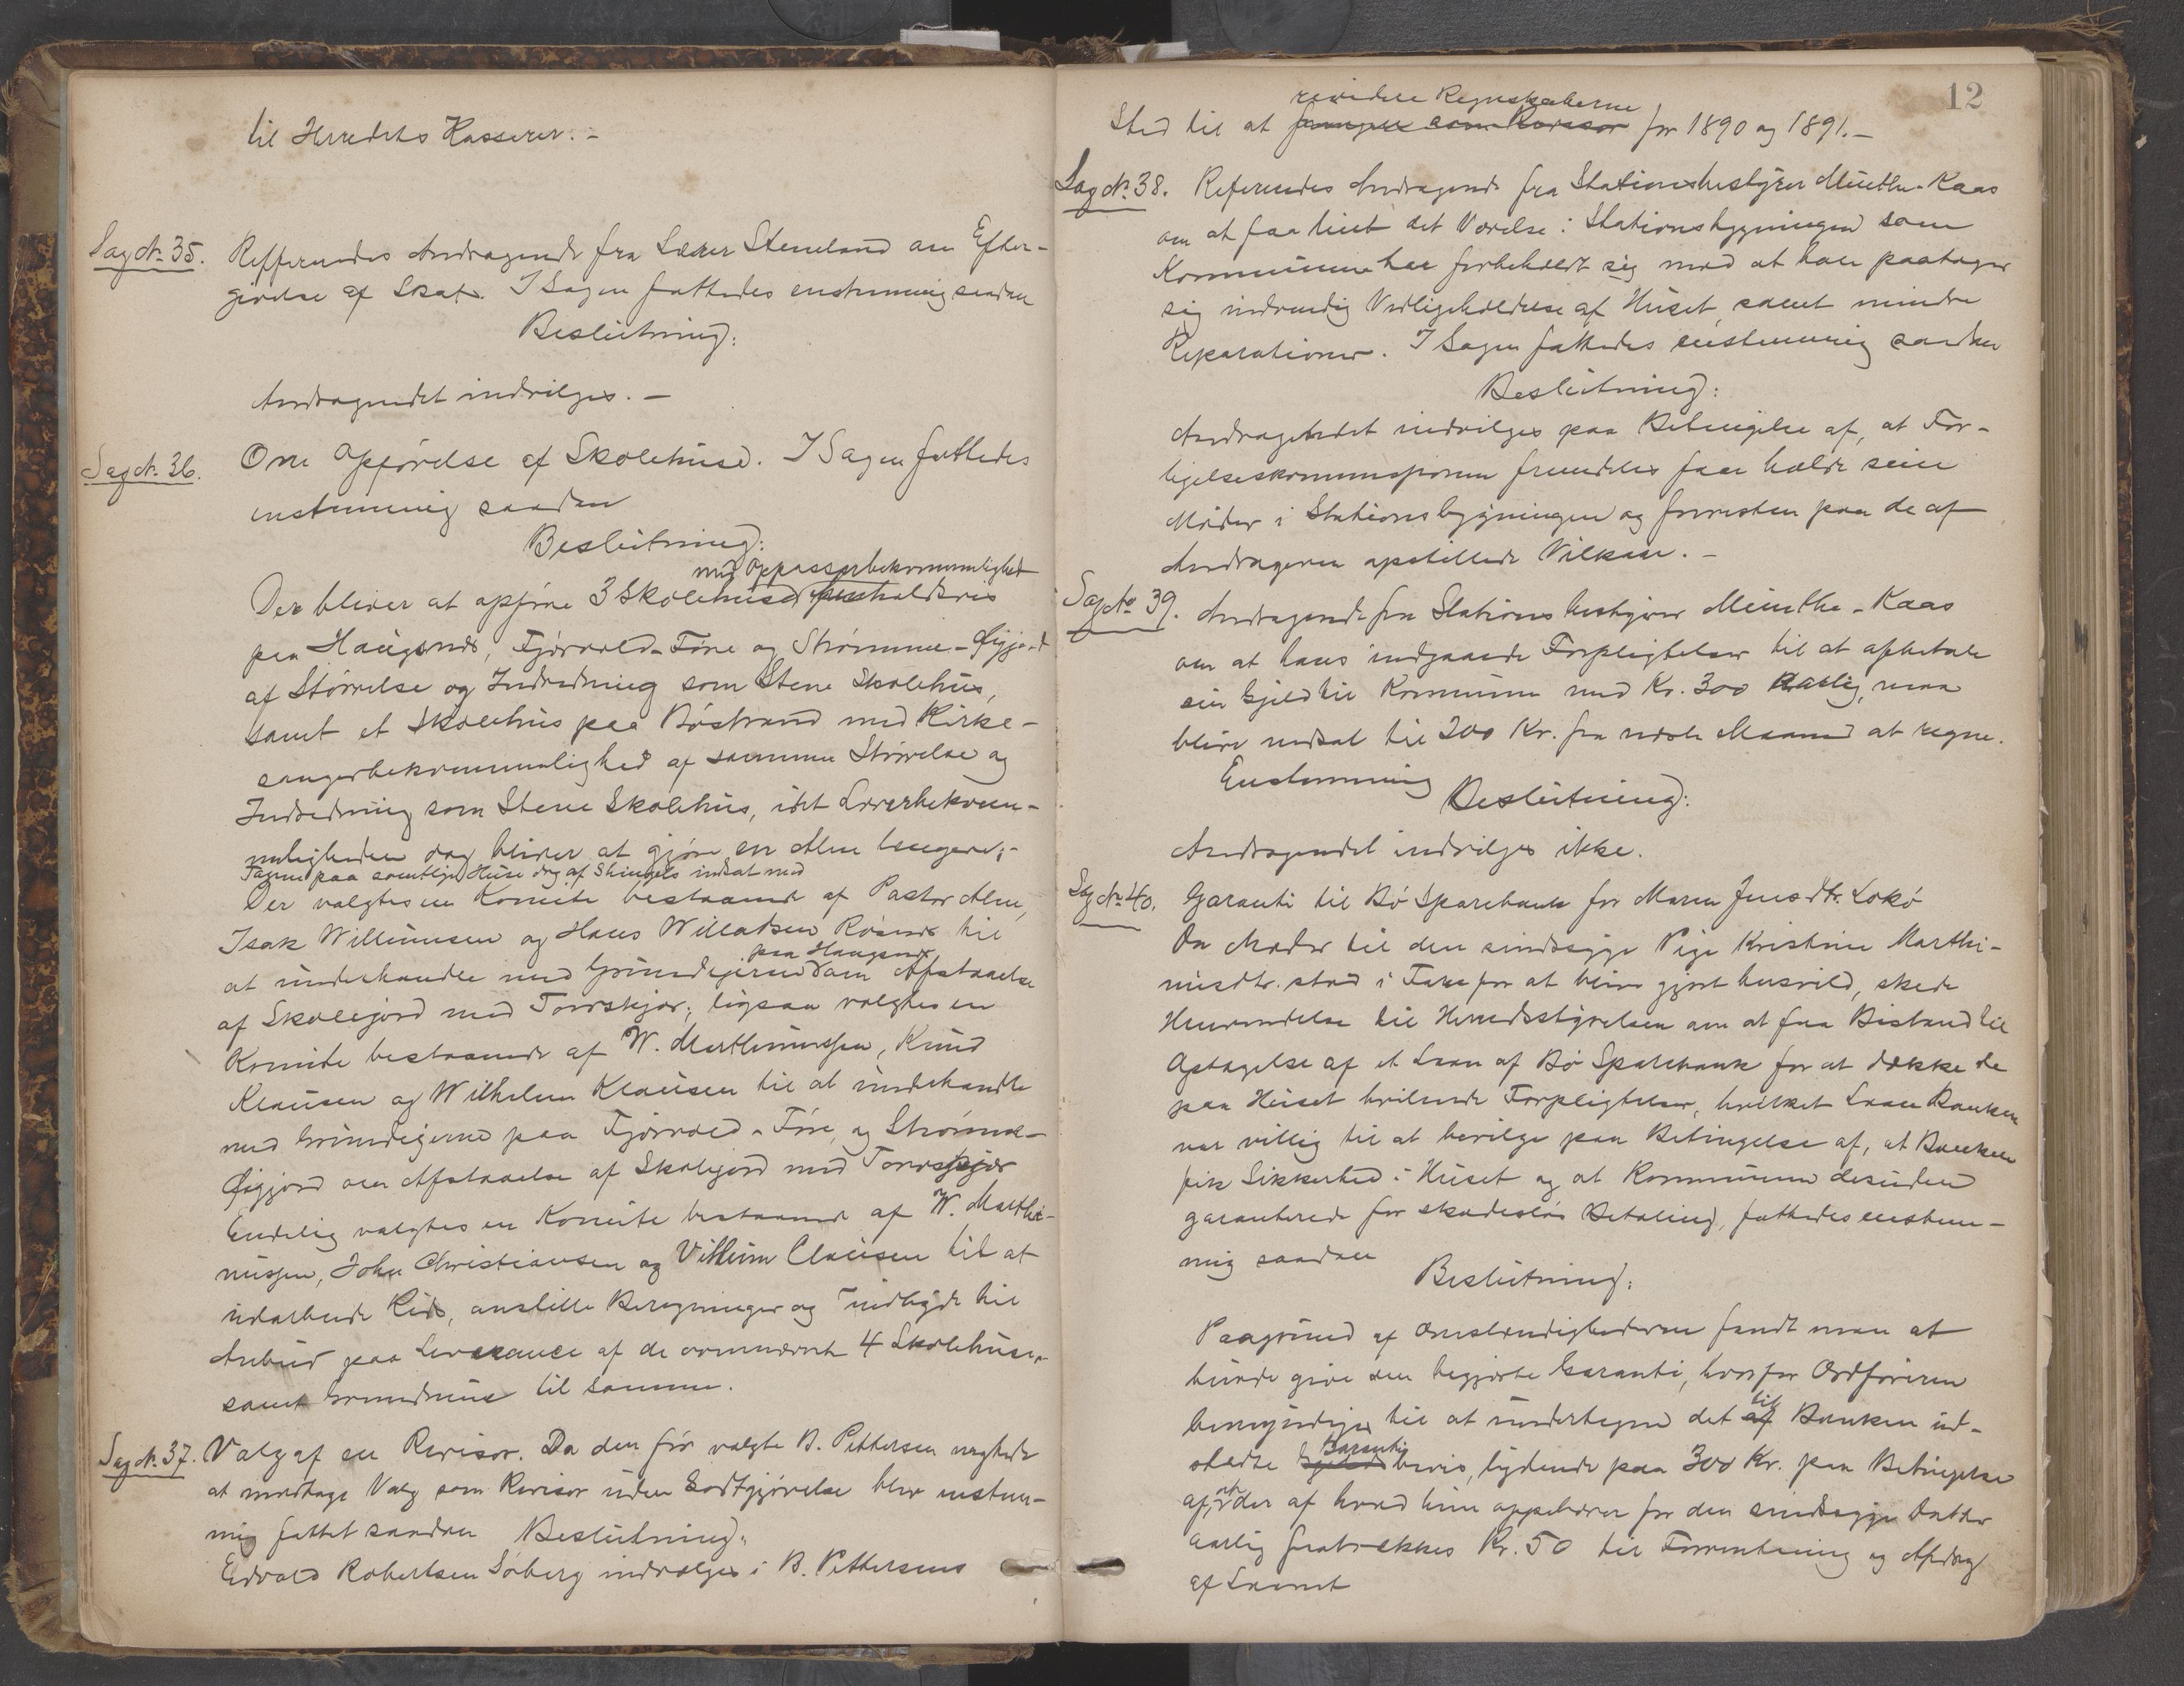 til Herredets Kasserer. -
Sag № 35. Refferendes Andragende fra Lærer Steneland om Efter-
givelse af Skat. I Sagen fattedes enstemmig saadan
Beslutning:
Andragendet indvilges. -
Sag № 36. Om Opførelse af Skolehuse. I Sagen fattedes
enstemmig saadan
Beslutning:
med Oppasserbekvemmelighed
Der bliver at opføre 3 Skolehuse
paa Haugsnes, Fjærvold-Føre og Strømme-Øigjord
af Størrelse og Indredning som Stene Skolehus,
samt et Skolehus paa Bøstrand med Kirke-
sangerbekvemmelighed af samme Størrelse og
Indredning som Stene Skolehus, idet Lærerbekvem-
meligheden dog bliver at gjøre en Alen længere; -
Tagene paa samtlige Huse dog af Shingels indsat med
Der valgtes en Komite bestaaende af Pastor Alme,
Isak Willumsen og Hans Willadsen Røsnes til
paa Haugsnes
at underhandle med Grundeierne om Afstaaelse
af Skolejord med Torvskjær; ligesaa valgtes en
Komite bestaaende af W. Marthinussen, Knud
Klausen og Wilhelm Klausen til at underhandle
med Grundeierne paa Fjærvold-Føre og Strømme-
Øigjord om Afstaaelse af Skolejord med Torvskjær
Endelig valgtes en Komite bestaaende af W. Marthi-
nussen, John Christiansen og Vilhelm Clausen til at
udarbeide Rids, anstille Beregninger og indbyde til
Anbud paa Leverance af de ovennævnte 4 Skolehuse,
samt Grundmure til samme.
Sag № 37. Valg af en Revisor. Da den før valgte B. Pettersen negtede
at modtage Valg som Revisor uden Godtgjørelse blev enstem-
mig fattet saadan Beslutning:
Edvard Robertsen Søberg indvælges i B. Pettersens
12
revidere Regnskaberne
Sted til at fungere som Revisor for 1890 og 1891. -
Sag № 38. Referendes Andragende fra Stationsbestyrer Munthe-Kaas
om at faa leiet det Værelse i Stationsbygningen som
Kommunen har forbeholdt sig mod at han paatager
sig indvendig Vedligeholdelse af Huset, samt mindre
Reparationer. I Sagen fattedes enstemmig saadan
Beslutning:
Andragendet indvilges paa Betingelse af, at For-
ligelseskommissionen fremdeles faar holde sine
Møder i Stationsbygningen og forresten paa de af
Andrageren opstillede Vilkaar. -
Sag № 39. Andragende fra Stationsbestyrer Munthe-Kaas
om at hans indgaaede Forpligtelser til at afbetale
sin Gjeld til Kommunen med Kr. 300 aarlig, maa
blive nedsat til 200 Kr. fra næste Maaned at regne.
Enstemmig
Beslutning:
Andragendet indvilges ikke.
Sag № 40. Garanti til Bø Sparebank for Maren Jensdtr. Lokø
Da Moder til den sindssyge Pige Kristine Marthi-
nusdtr. stod i Fare for at blive gjort husvild, skede
Henvendelse til Herredsstyrelsen om at faa Bistand til
Optagelse af et Laan af Bø Sparebank for at dække de
paa Huset hvilende Forpligtelser, hvilket Laan Banken
var villig til at bevilge paa Betingelse af, at Banken
fik Sikkerhed i Huset og at Kommunen desuden
garanterede for skadesløs Betaling, fattedes enstem-
mig saadan
Beslutning:
Paagrund af Omstændighederne fandt man at
burde give den begjærte Garanti, hvorfor Ordføreren
til
bemyndiges til at undertegne det af Banken ud-
Garanti
stedte Gjelds bevis, lydende paa 300 Kr. paa Betingelse
at
af, der af hvad hun oppebærer for den sindssyge Datter
aarlig fratrekkes Kr. 50 til Forrentning og Afdrag
af Laanet